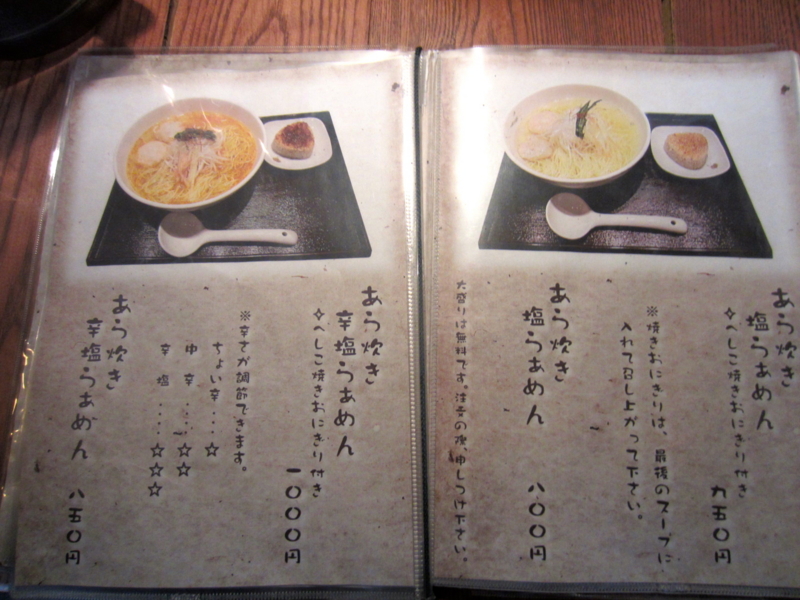 あら炊き
塩らぁめん
✧へしこ焼きおにぎり付き
九五〇円
※焼きおにぎりは、最後のスープに
入れて召し上がって下さい。
あら炊き
塩らぁめん
八〇〇円
大盛りは無料です。注文の際、申しつけ下さい。
あら炊き
辛塩らぁめん
✧へしこ焼きおにぎり付き
一〇〇〇円
※辛さが調節できます。
ちょい辛・・・☆
中辛・・・・☆☆
辛塩・・・・☆☆☆
あら炊き
辛塩らぁめん
八五〇円